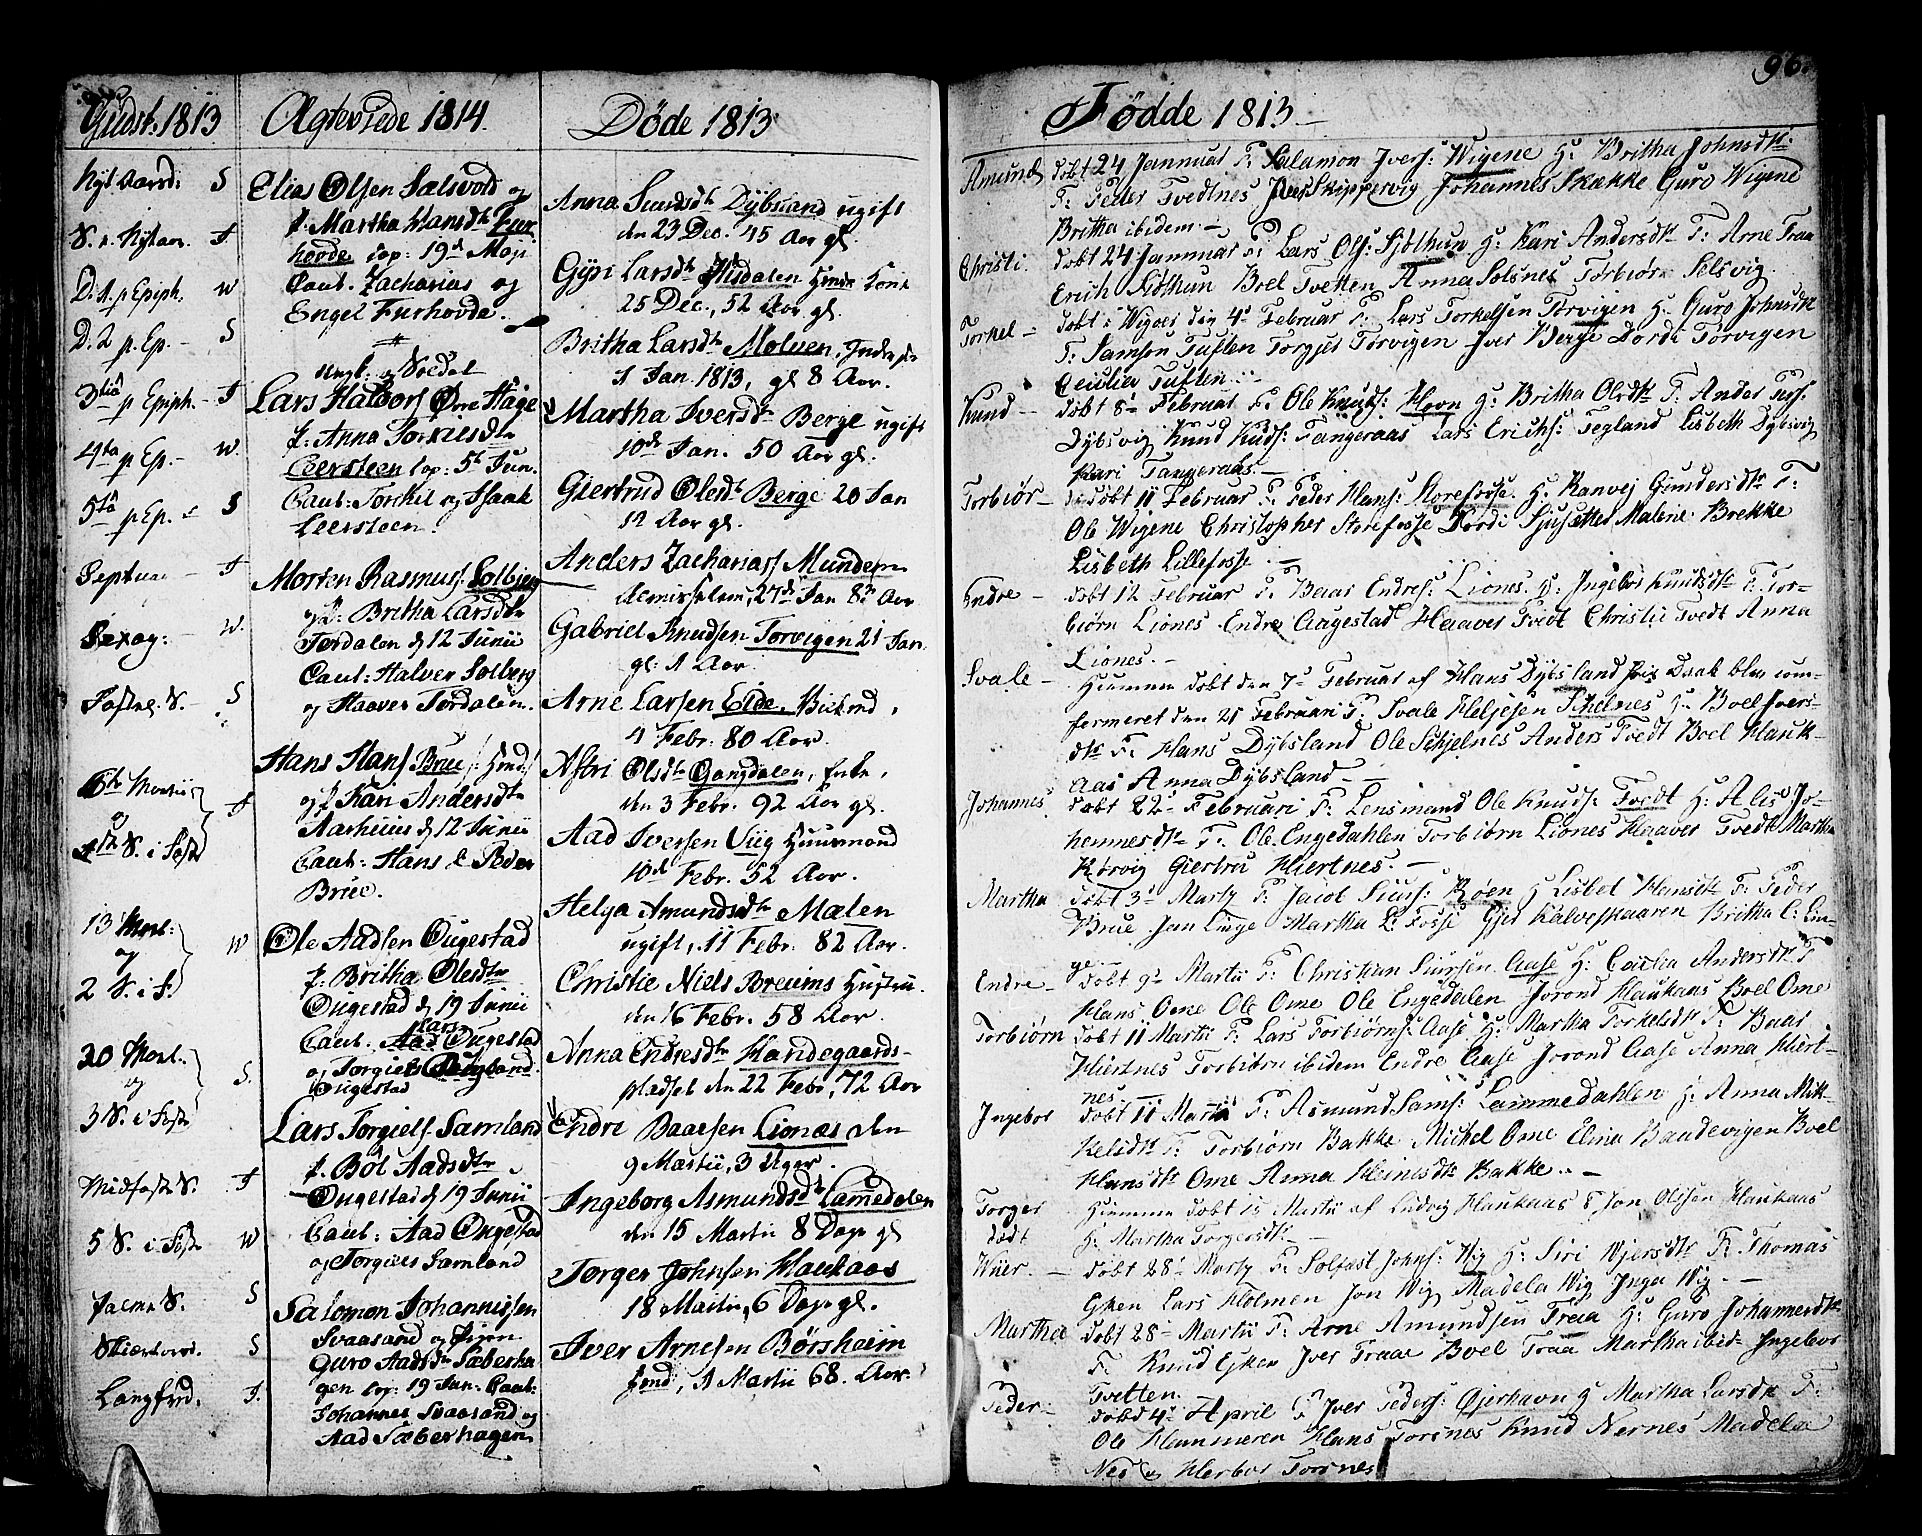 Gudst: 1813
Nyt Aarsd: S
S. e. Nytaar J.
D. 1. p Epiph. W
D. 2 p. Ep. - S
3tia p Epiph. - J
4ta p Ep. - W.
5ta p Ep. - S
Septuag - J
Sexag: - W.
Fastel. S. - S
J
1ste S. i Faste
13 Mart:
og W
2 S. i F.
20 Mart.
og S.
3 S. i Faste
Midfaste S. J
5 S. i Faste W
Palme S. S
Skiertorsd. S
Langfred. J.
Ægteviede 1814
Elias Olsen Sælsvold og
p. Martha Hansdtr Fur
hovde cop: 19d Maji
Caut. Zacharias og
Engel Furhovde.
Ungk: og Soldat
Lars Halvors Øvre Hage
p. Anna Torkilsdtr
Leersteen cop: 5t Jun.
Caut: Torckil og Isaak
Leersteen.
Morten Rasmuss. Solbierg
og p. Britha Larsdtr
Tordalen d 12 Junii
Caut: Halver Solberg
og Haaver Tordalen.
Hans Hans Brue
og p. Kari Andersdtr
Aarhuus d 12 Junii
Caut: Hans & Peder
Brue.
Ole Aadsen Ougestad
p. Britha Olesdtr
Ougestad d 19 Junii
Caut. Lars Ougestad
og Torgiels
Ougestad
Lars Torgiels Samland
p. Böl Aadsdtr
Ougestad d 19 Junii
Caut: Aad Ougestad
og Torgiels Samland
Salomon Johannissen
Svaasand og Pigen
Guro Aadsdtr Sæberha
gen cop: 19 Jun. Caut:
Johannes Svaasand og
Aad Sæberhagen
Døde 1813
Anna Siursdtr Dybsland ugift
den 23 Dec. 45 Aar gl.
Gyri Larsdtr Hisdalen Kone
25 Dec., 52 Aar gl.
Britha Larsdtr Molven, Inderste
1 Jan. 1813, gl 8 Aar.
Martha Iversdtr Berge ugift
10de Jan. 50 Aar gl.
Giertrud Olesdtr Berge 20 Jan
12 Aar gl.
Anders Zachariass Mundem
27de Jan 83 Aar
Gabriel Knudsen Torvigen 21 Jan.
gl: 1 Aar.
Arne Larsen Eide,
1 Febr: 80 Aar.
Astri Olsdtr Gangdalen, Enke,
den 3 Febr. 92 Aar gl.
Aad Iversen Viig Huusmand
10de Febr. 52 Aar.
Helga Amundsdtr Mælen
ugift, 11 Febr: 82 Aar.
Christie Niels Breiums Hustru.
den 16 Febr. 58 Aar.
Anna Endresdtr Handegaards-
pladset den 22 Febr, 72 Aar
Endre Baarsen Lionæs den
9 Martii, 3 Uger.
Ingeborg Asmundsdtr Lamedalen
den 15 Martii 8 Dage gl
Torger Johnsen Haukaas
18 Martii, 6 Dage gl.
Iver Arnesen Børsheim
1 Martii 68. Aar.
96.
Fødde 1813.
Amund døbt 24 Januar F: Salamon Ivers: Wigene H: Britha Johnsdtr:
F: Peder Tvedtnes Peer Skippervig Johannes Skække Guro Wigene
Britha ibidem. -
Christi. døbt 24 Januar F: Lars Ols: Sjøthun H: Kari Andersdtr F: Arne Traa
Erich Sjøthun Boel Tvetten Anna Solsnes Torbiør Selsvig.
Torkel - døbt i Wigøer den 4de Februar F. Lars Torkelsen Torvigen H. Guro Johnsdtr
F: Samson Tuften Torgjer Torvigen Iver Berge Dordi Torvigen
Cecilia Tuften.
Knud - døbt 8de Februar F. Ole Knuds: Hovn H: Britha Olsdtr F: Ander
Dybsvig Knud Knuds: Tangeraas Lars Erichs: Tegland Lisbeth Dybsvig
Kari Tangeraas. -
Torbiør - døbt 11 Februar F. Peder Hans: Storefosse. H: Ranvej Gundersdtr F:
Ole Wigene Christopher Storefosse Dordi Malene Brekke
Lisbeth Lillefosse -
Endre - døbt 12 Februar F. Baar Endres: Liones. H: Ingebor Knudsdtr F: Tor-
biørn Liones Endre Augestad Haaver Tvedt Christie Tvedt Anna
Liones. -
Svale - Hiemme døbt den 7de Februar af Hans Dybsland hvis Daab blev con-
formeret den 21 Februari F: Svale Heljesen Schelnes H: Boel Ivers-
dtr F: Hans Dybsland Ole Schjelnes Anders Tvedt Boel Hauk-
aas Anna Dybsland -
Johannes døbt 22 Februari F: Lensmand Ole Knuds: Tvedt H: Alis Jo-
hennesdtr F. Ole Engedahlen Torbiørn Liones Haaver Tvedt Martha
Rørvig Giertru Hiertnes. -
Martha døbt 3de Marty F: Jacob Siurs: Røen H Lisbet Hansdtr F: Peder
Brue Jan Linge Martha L: Fosse Gjer Kalveskaaren Britha C: Lin-
ge -
Endre - døbt 9de Martii F: Christian Siursen Aase H: Cæcilia Andersdtr F
Hans Ome Ole Ome Ole Engedalen Jorond Haukaas Boel Ome
Torbiørn døbt 11 Martii F: Lars Torbiørns: Aase H: Martha Torkelsdtr F. Baar
Hiertnes Torbiørn ibidem Endre Aase Jorond Aase Anna Hiert-
nes. -
Ingebor døbt 11 Martii F: Asmund Sams: Lammedahlen H: Anna Mik-
kelsdtr F: Torbiørn Bakke Michel Ome Elina Baudevigen Boel
Hansdtr Ome Anna Heinesdtr Bakke. -
Torger Hiemme døbt 15 Martii af Ludvig Haukaas F. Jon Olsen Haukaas
dødt H: Martha Torgersdtr -
Wiier. - døbt 28de Marty F. Solfast Johns: Wig H: Siri Wjersdtr F. Thomas
Gjken Lars Holmen Jon Wig Madela Wig Inga Wig. -
Martha døbt 28de Martii F: Arne Amundsen Traa H: Guro Johannesdtr
F. Knud Gjken Iver Traae Boel Traa Martha ibid: Ingebor
Tvetten.
Peder - døbt 4de April F. Iver Peders: Gjerhavn H Martha Larsdtr F:
Ole Hammeren Hans Torsnes Knud Nernes Madela
Nes og Herbor Torsnes